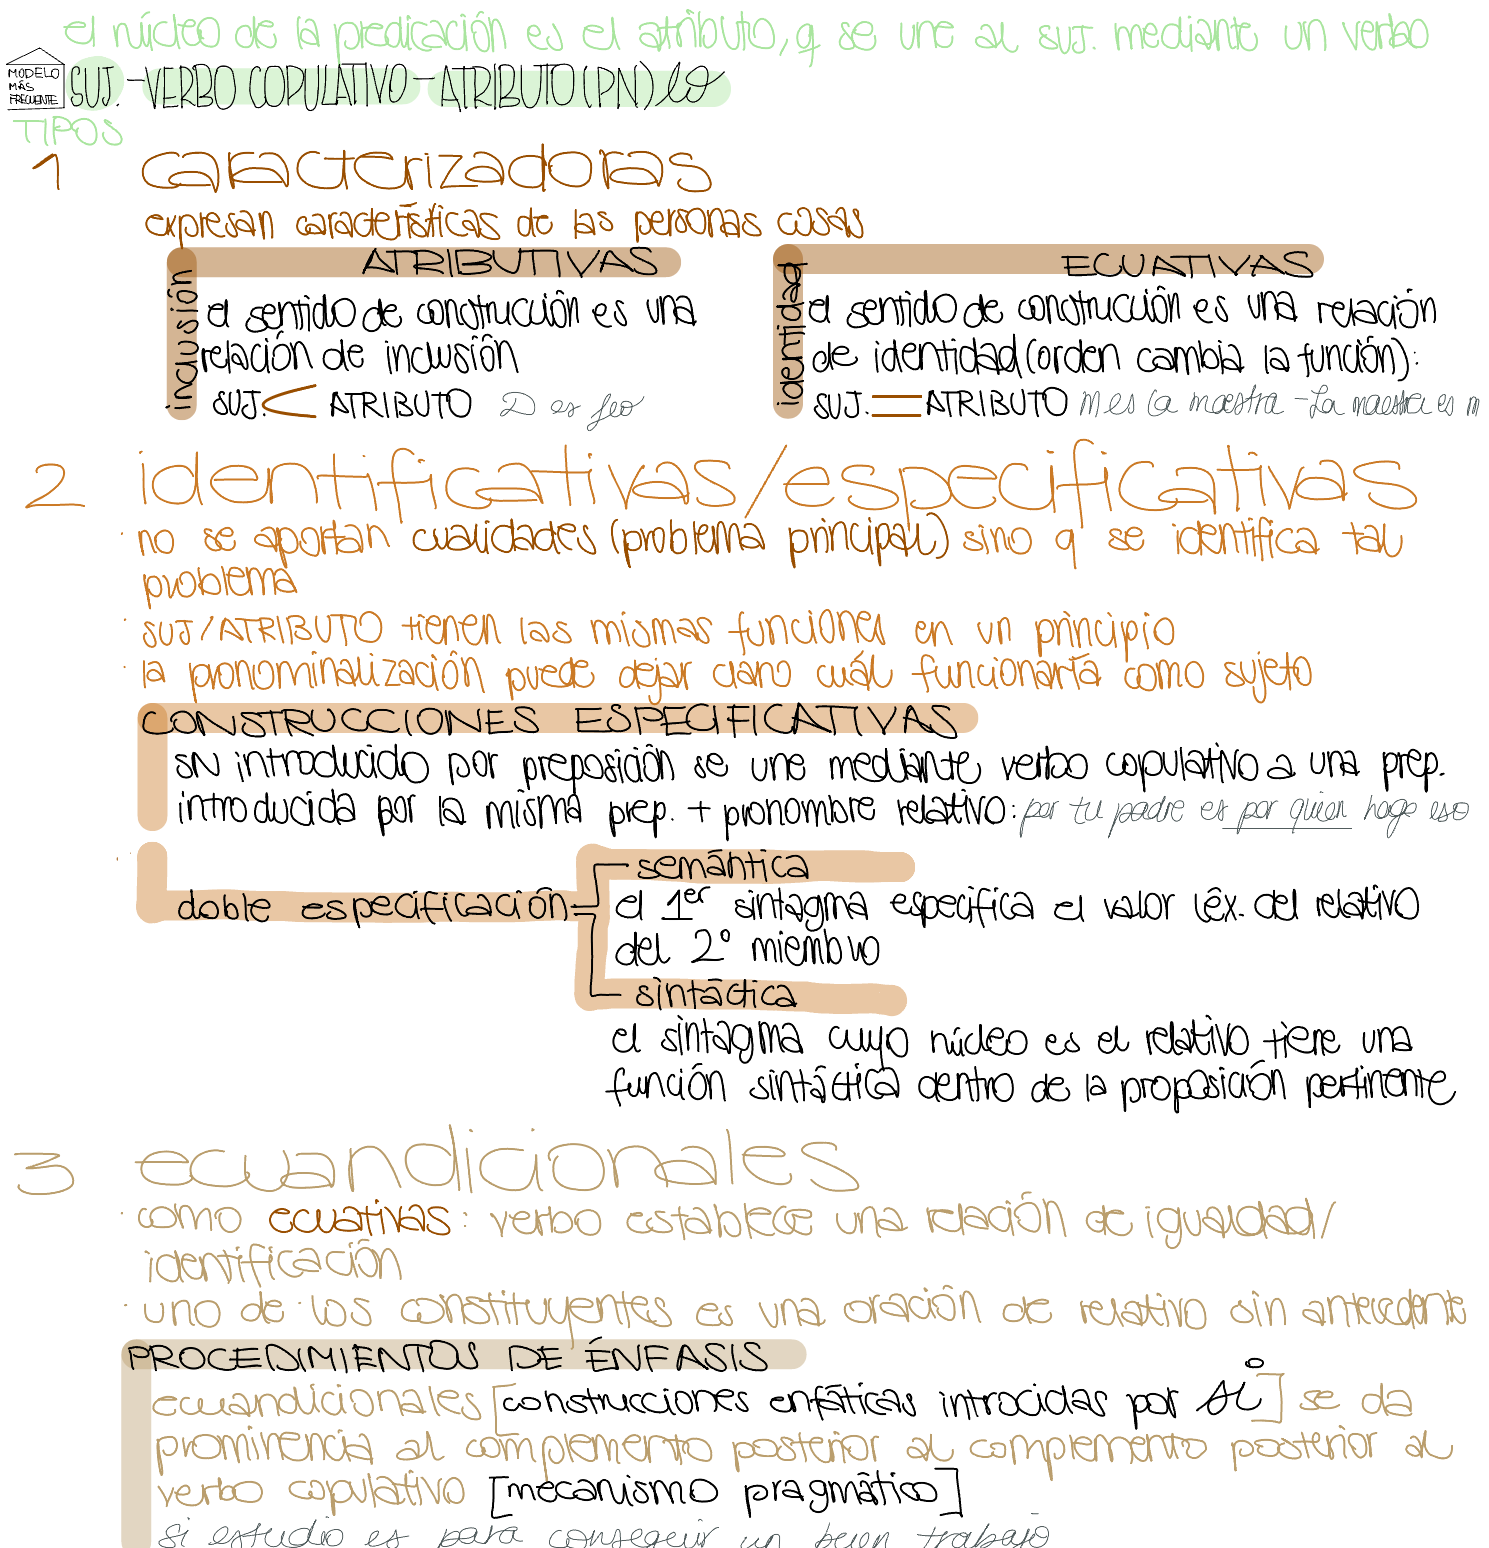 el núcleo de la predicación es el atributo, q se une al suj. mediante un verbo
MODELO
MÁS
FRECUENTE
SUJ. - VERBO COPULATIVO - ATRIBUTO (PN) lo
TIPOS
1 caracterizadoras
expresan características de las personas cosas
inclusión
ATRIBUTIVAS
el sentido de construcción es una
relación de inclusión
SUJ. < ATRIBUTO D es feo
identidad
ECUATIVAS
el sentido de construcción es una relación
de identidad (orden cambia la función):
SUJ. = ATRIBUTO M es la maestra - La maestra es m
2 identificativas/especificativas
· no se aportan cualidades (problema principal) sino q se identifica tal
problema
· SUJ/ATRIBUTO tienen las mismas funciones en un principio
· la pronominalización puede dejar claro cuál funcionaría como sujeto
CONSTRUCCIONES ESPECIFICATIVAS
SN introducido por preposición se une mediante verbo copulativo a una prep.
introducida por la misma prep. + pronombre relativo: por tu padre es por quien hago eso
doble especificación
semántica
el 1er sintagma especifica el valor léx. del relativo
del 2º miembro
sintáctica
el sintagma cuyo núcleo es el relativo tiene una
función sintáctica dentro de la proposición pertinente
3 ecuandicionales
· como ecuativas: verbo establece una relación de igualdad/
identificación
· uno de los constituyentes es una oración de relativo sin antecedente
PROCEDIMIENTOS DE ÉNFASIS
ecuandicionales [construcciones enfáticas introcidas por si] se da
prominencia al complemento posterior al complemento posterior al
verbo copulativo [mecanismo pragmático]
si estudio es para conseguir un buen trabajo